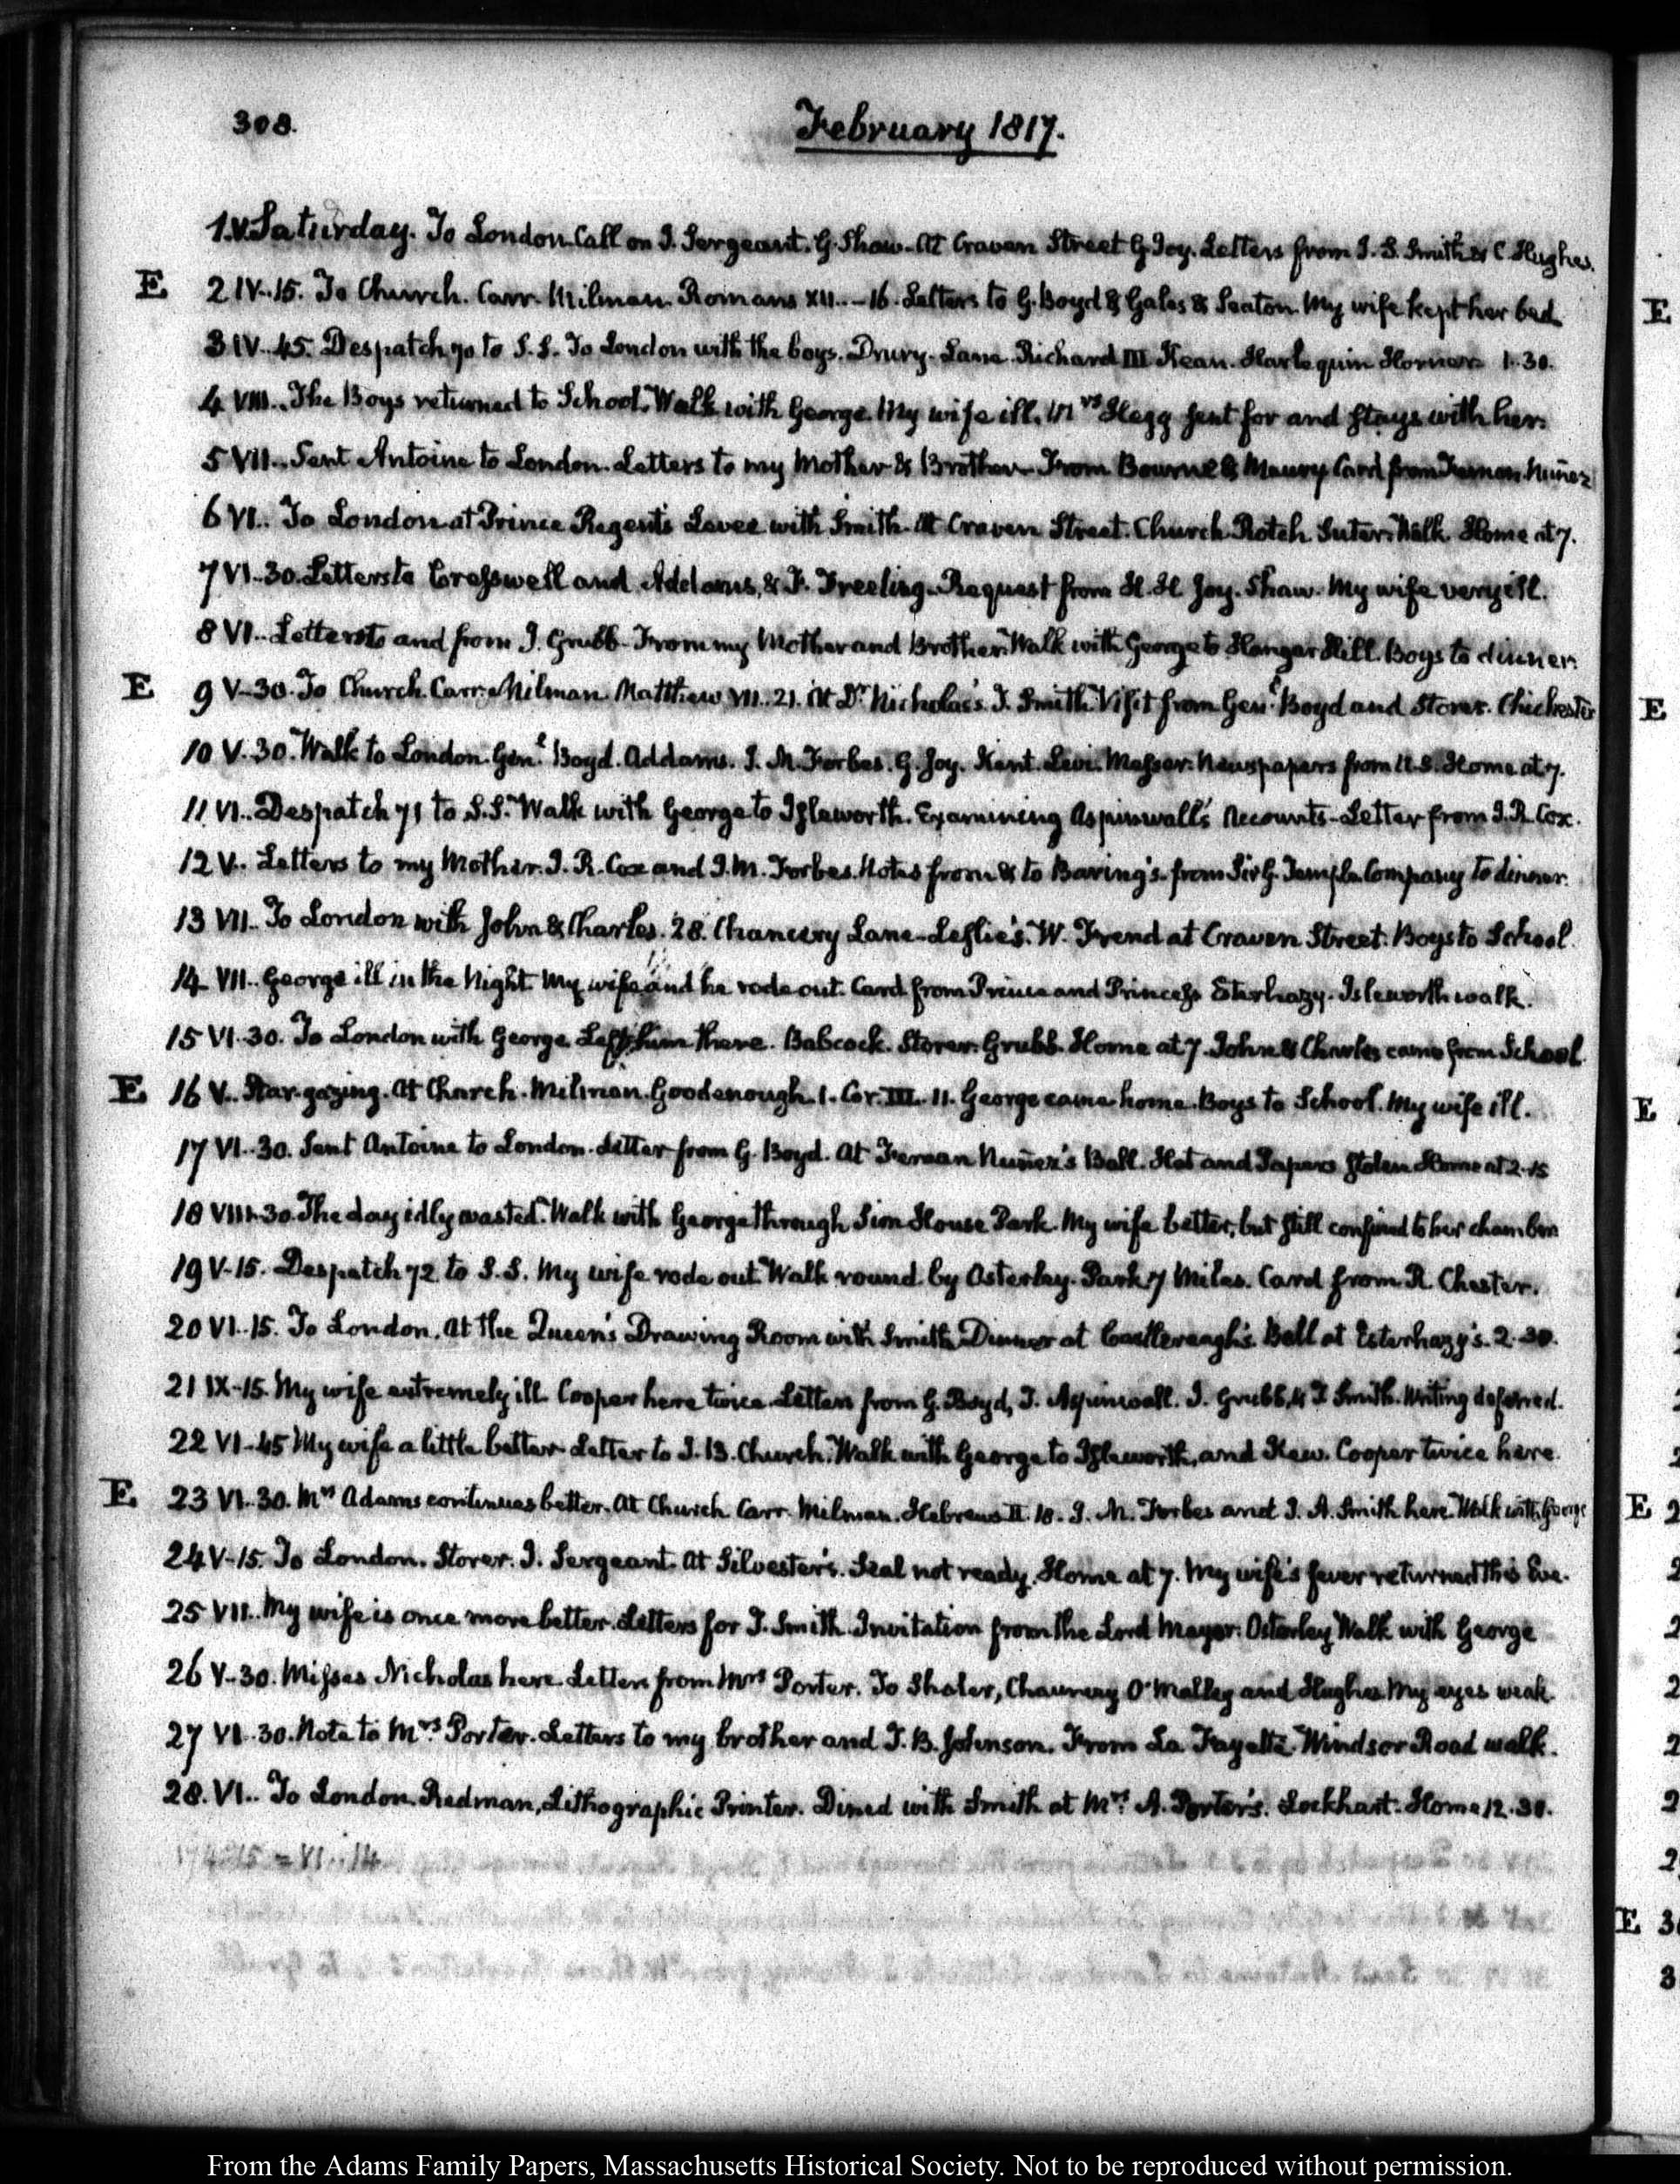 308.
February 1817.
1. V. Saturday. To London. Call on J. Sergeant. G. Shaw. At Craven Street G. Joy. Letters from J. S. Smith & C. Hughes.
E 2 IV..15. To Church. Carr. Milman. Romans XII..—16. Letters to G. Boyd & Gales & Seaton. My wife kept her bed
3 IV..45. Despatch 70 to S.S. To London with the boys. Drury-Lane. Richard III Kean. Harlequin Horner 1..30.
4 VIII.. The Boys returned to School. Walk with George. My wife ill. Mrs Clegg sent for and stays with her.
5 VII.. Sent Antoine to London. Letters to my Mother & Brother. From Bourne & Maury Card from Fernan Nuñez
6 VI.. To London at Prince Regent's Levee with Smith. At Craven Street. Church Rotch Suter. Walk. Home at 7.
7 VI..30. Letters to Cresswell and Addams, & F. Freeling. Request from H. H. Joy. Shaw. My wife very ill.
8 VI.. Letters to and from J. Grubb. From my Mother and Brother. Walk with George to Hanger Hill. Boys to dinner.
E 9 V-30. To Church. Carr. Milman. Matthew VII..21. At Dr. Nicholas's. J. Smith. Visit from Genl. Boyd and Storer. Chichester
10 V.30. Walk to London. Genl. Boyd. Addams. J. M. Forbes. G. Joy. Kent. Levi. Messer. Newspapers from U.S. Home at 7.
11 VI.. Despatch 71 to S.S. Walk with George to Isleworth. Examining Aspinwall's Accounts. Letter from J. R. Cox.
12 V.. Letters to my Mother. J. R. Cox and J. M. Forbes. Notes from & to Baring's. from Sir G. Temple. Company to dinner.
13 VII.. To London with John & Charles. 28. Chancery Lane. Leslie's. W. Frend at Craven Street. Boys to School.
14 VII.. George ill in the Night. My wife and he rode out. Card from Prince and Princess Esterhazy. Isleworth walk.
15 VI..30. To London with George. Left him there. Babcock. Storer. Grubb. Home at 7. John & Charles came from School
E 16 V.. Star-gazing. At Church. Milman. Goodenough. 1. Cor. III. 11. George came home. Boys to School. My wife ill.
17 VI..30. Sent Antoine to London. Letter from G. Boyd. At Fernan Nuñez's Ball. Hat and Papers stolen Home at 2..15
18 VIII.30. The day idly wasted. Walk with George through Sion House Park. My wife better, but still confined to her chamber
19 V-15. Despatch 72 to S.S. My wife rode out. Walk round by Osterley-Park 7 Miles. Card from R. Chester.
20 VI..15. To London. At the Queen's Drawing Room with Smith. Dinner at Castlereagh's. Ball at Esterhazy's. 2.30.
21 IX-15. My wife extremely ill. Cooper here twice. Letters from G. Boyd, T. Aspinwall. J. Grubb, & J Smith. Writing deferred.
22 VI..45 My wife a little better. Letter to J. B. Church. Walk with George to Isleworth, and Kew. Cooper twice here.
E 23 VI..30. Mrs Adams continues better. At Church Carr. Milman. Hebrews II. 18. J. M. Forbes and J. A. Smith here. Walk with George
24 V-15. To London. Storer. J. Sergeant. At Silvester's. Seal not ready. Home at 7. My wife's fever returned this Eve.
25 VII.. My wife is once more better. Letters for J. Smith. Invitation from the Lord Mayor. Osterley Walk with George
26 V-30. Misses Nicholas here. Letter from Mrs Porter. To Shaler, O'Malley and Hughes. My eyes weak.
27 VI..30. Note to Mrs. Porter. Letters to my brother and T. B. Johnson. From La Fayette. Windsor Road walk.
28. VI.. To London. Redman, Lithographic Printer. Dined with Smith at Mrs. A. Porter's. Lockhart. Home 12.30.
174:15 = VI..14
E
E
E
E
E
From the Adams Family Papers, Massachusetts Historical Society. Not to be reproduced without permission.